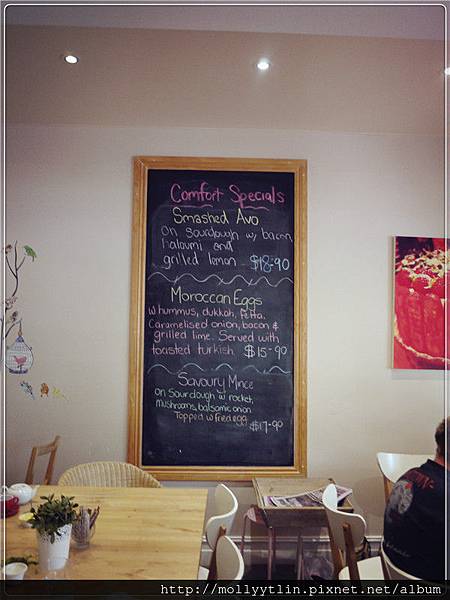 Comfort Specials
Smashed Avo
on sourdough w/ bacon,
haloumi and
grilled lemon $18-90
Moroccan Eggs
w hummus, dukkah, fetta,
Caramelised onion, bacon &
grilled lime. Served with
toasted turkish. $15-90
Savoury Mince
on Sourdough w rocket,
mushrooms, balsamic onion
Topped w fried egg
$17-90
http://mollyytlin.pixnet.net/album